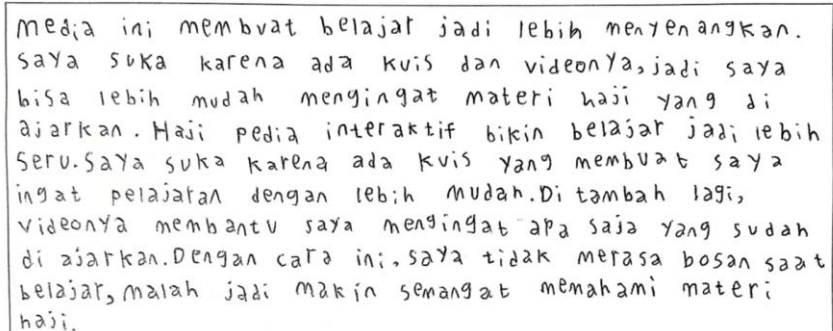 media ini membuat belajar jadi lebih menyenangkan.
saya suka karena ada kuis dan videonya, jadi saya
bisa lebih mudah mengingat materi haji yang di
ajarkan. Haji pedia interaktif bikin belajar jadi lebih
seru. Saya suka karena ada kuis yang membuat saya
ingat pelajaran dengan lebih mudah. Di tambah lagi,
videonya membantu saya mengingat apa saja yang sudah
di ajarkan. Dengan cara ini, saya tidak merasa bosan saat
belajar, malah jadi makin semangat memahami materi
haji.